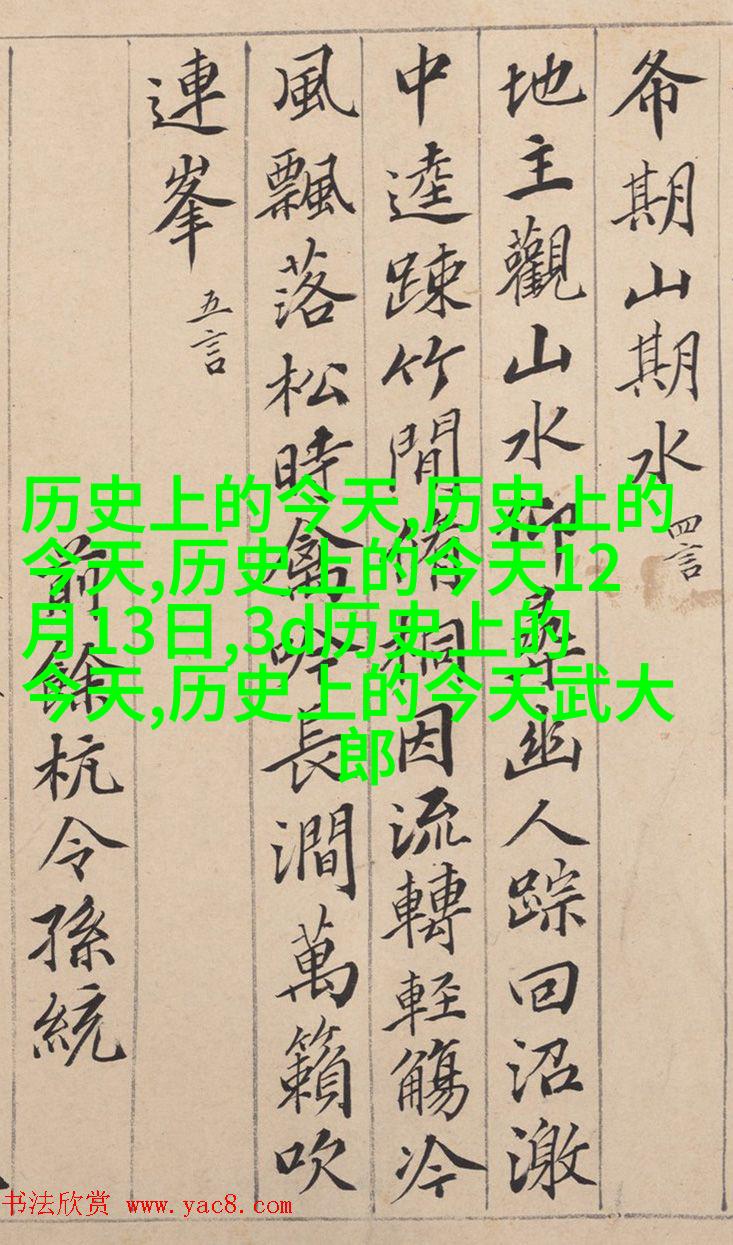 希期山期水 四言
地主觀山水仰尋幽人踪回沼激
中逵踈竹間脩桐因流轉輕觴冷
風飄落松時禽吟長澗萬籟吹
連峯 五言
前餘杭令孫統
历史上的今天,历史上的
今天,历史上的今天12
月13日,3d历史上的
今天,历史上的今天武大
郎
书法欣赏 www.yac8.com